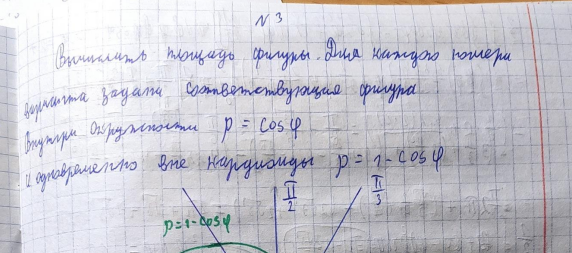 № 3
Вычислить площадь фигуры. Для каждого номера
варианта задана соответствующая фигура
Внутри окружности ρ = cosφ
и одновременно вне кардиоиды ρ = 1 - cosφ
π/2
π/3
ρ=1-cosφ